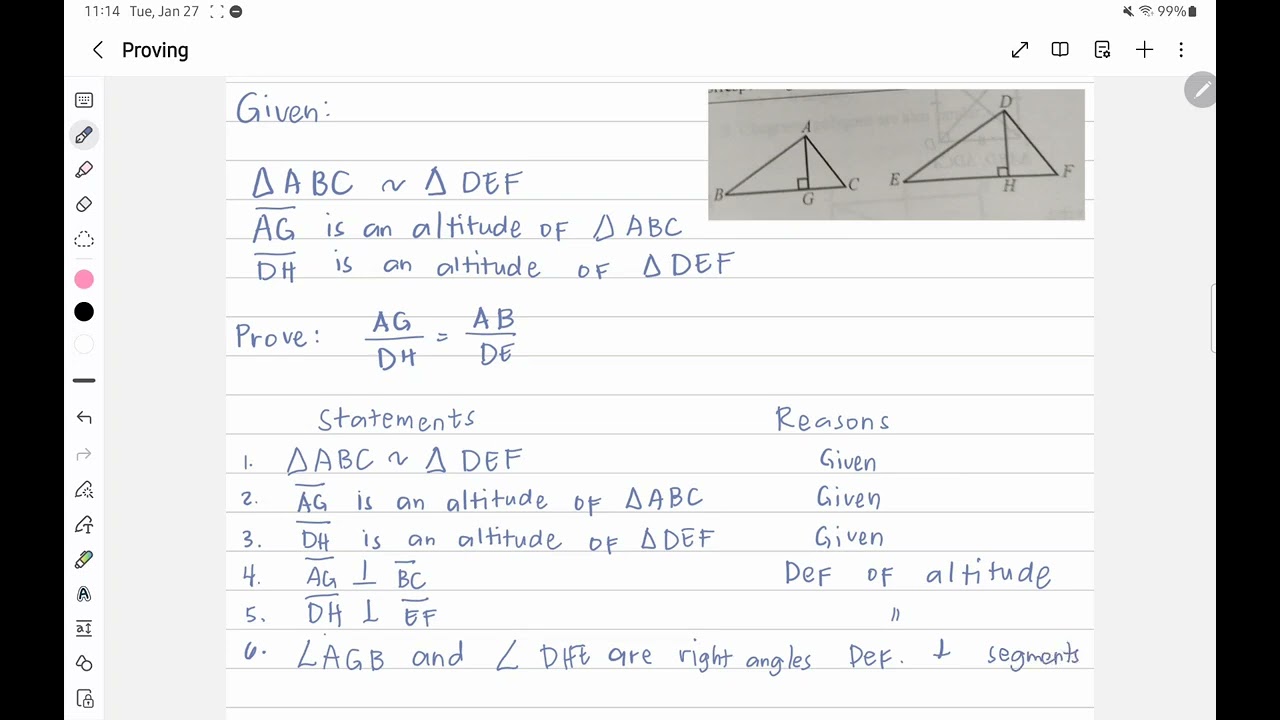 11:14 Tue, Jan 27
99%
Proving
Given:
△ABC ~ △DEF
A̅G̅ is an altitude of △ABC
D̅H̅ is an altitude of △DEF
A
B
G
C
D
E
H
F
Prove: AG/DH = AB/DE
Statements Reasons
1. △ABC ~ △DEF Given
2. A̅G̅ is an altitude of △ABC Given
3. D̅H̅ is an altitude of △DEF Given
4. A̅G̅ ⊥ B̅C̅ Def of altitude
5. D̅H̅ ⊥ E̅F̅ "
6. ∠AGB and ∠DHE are right angles Def. ⊥ segments